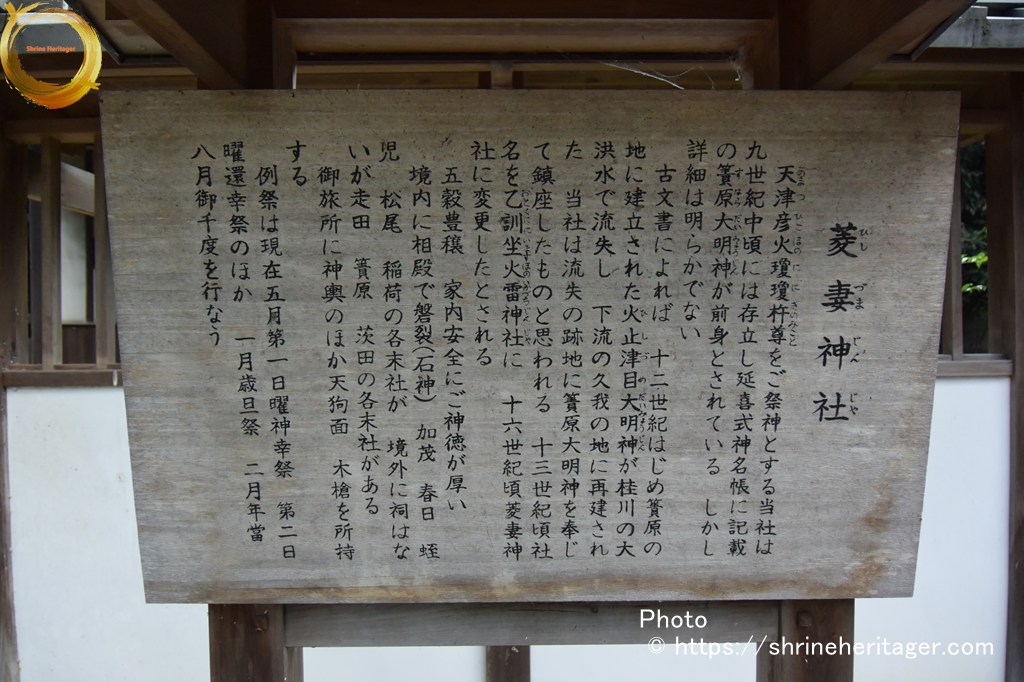 Shrine Heritager
菱妻神社
ひしづまじんじゃ
天津彦火瓊瓊杵尊をご祭神とする当社は
あまつひこほのににぎのみこと
九世紀中頃には存立し延喜式神名帳に記載
の簀原大明神が前身とされている しかし
すはらだいみょうじん
詳細は明らかでない
古文書によれば 十二世紀はじめ簀原の
地に建立された火止津目大明神が桂川の大
ひしづめだいみょうじん
洪水で流失し 下流の久我の地に再建され
た 当社は流失の跡地に簀原大明神を奉じ
て鎮座したものと思われる 十三世紀頃社
名を乙訓坐火雷神社に 十六世紀頃菱妻神
社に変更したとされる
五穀豊穣 家内安全にご神徳が厚い
境内に相殿で磐裂(石神) 加茂 春日 蛭
児 松尾 稲荷の各末社が 境外に祠はな
いが走田 簀原 茨田の各末社がある
御旅所に神輿のほか天狗面 木槍を所持
する
例祭は現在五月第一日曜神幸祭 第二日
曜還幸祭のほか 一月歳旦祭 二月年當
八月御千度を行なう
Photo
© https://shrineheritager.com